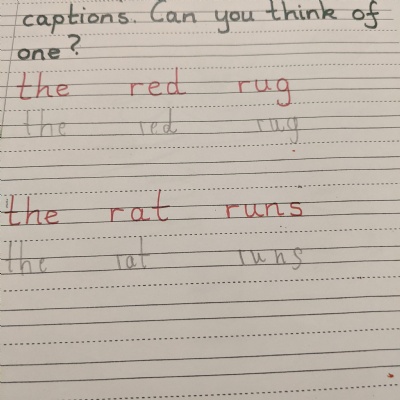 captions. Can you think of
one?
the red rug
the red rug
the rat runs
the rat runs